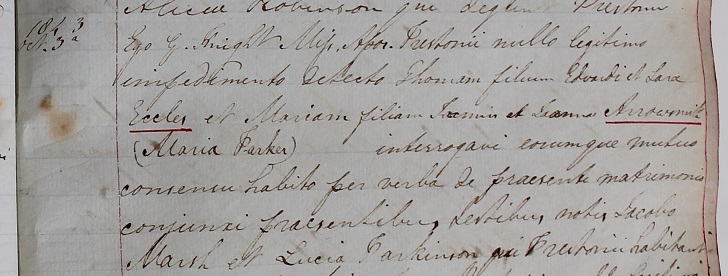 Alicia Robinson qui degunt Prestonii
1843
Oct. 3ª
Ego G. Knight Miss. Apos. Prestonii nullo legitimo
impedimento detecto Thomam filium Edvardi et Sara
Eccles et Mariam filiam et Joanna Arrowsmith
(Maria Parker) interrogavi eorumque mutuo
consensu habito per verba de praesente matrimonio
conjunxi praesentibus testibus notis Jacobo
Marsh et Lucia Parkinson qui Prestonii habitant